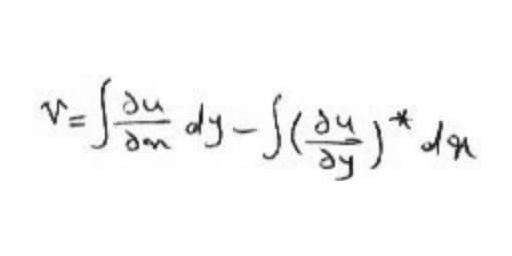 v = ∫ ∂u/∂x dy − ∫ (∂u/∂y)* dx